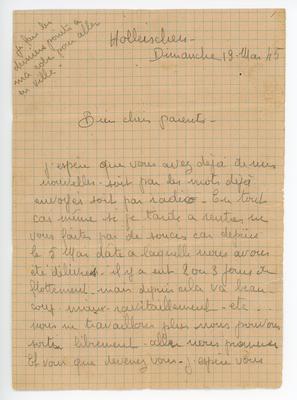 je fais les
derniers points à
ma robe pour aller
en ville.
Holleischen
Dimanche 13 Mai 45
Bien chers parents -
j'espère que vous avez déjà de mes
nouvelles - soit par les mots déjà
envoyés soit par radio - En tout
cas même si je tarde à rentrer ne
vous faites pas de soucis car depuis
le 5 Mai date à laquelle nous avons
été délivrées - il y a eut 2 ou 3 jours de
flottement - mais depuis cela va beau
coup mieux - ravitaillement - etc -
nous ne travaillons plus nous pouvons
sortir librement - aller nous promener
Et vous que devenez vous - j'espère vous